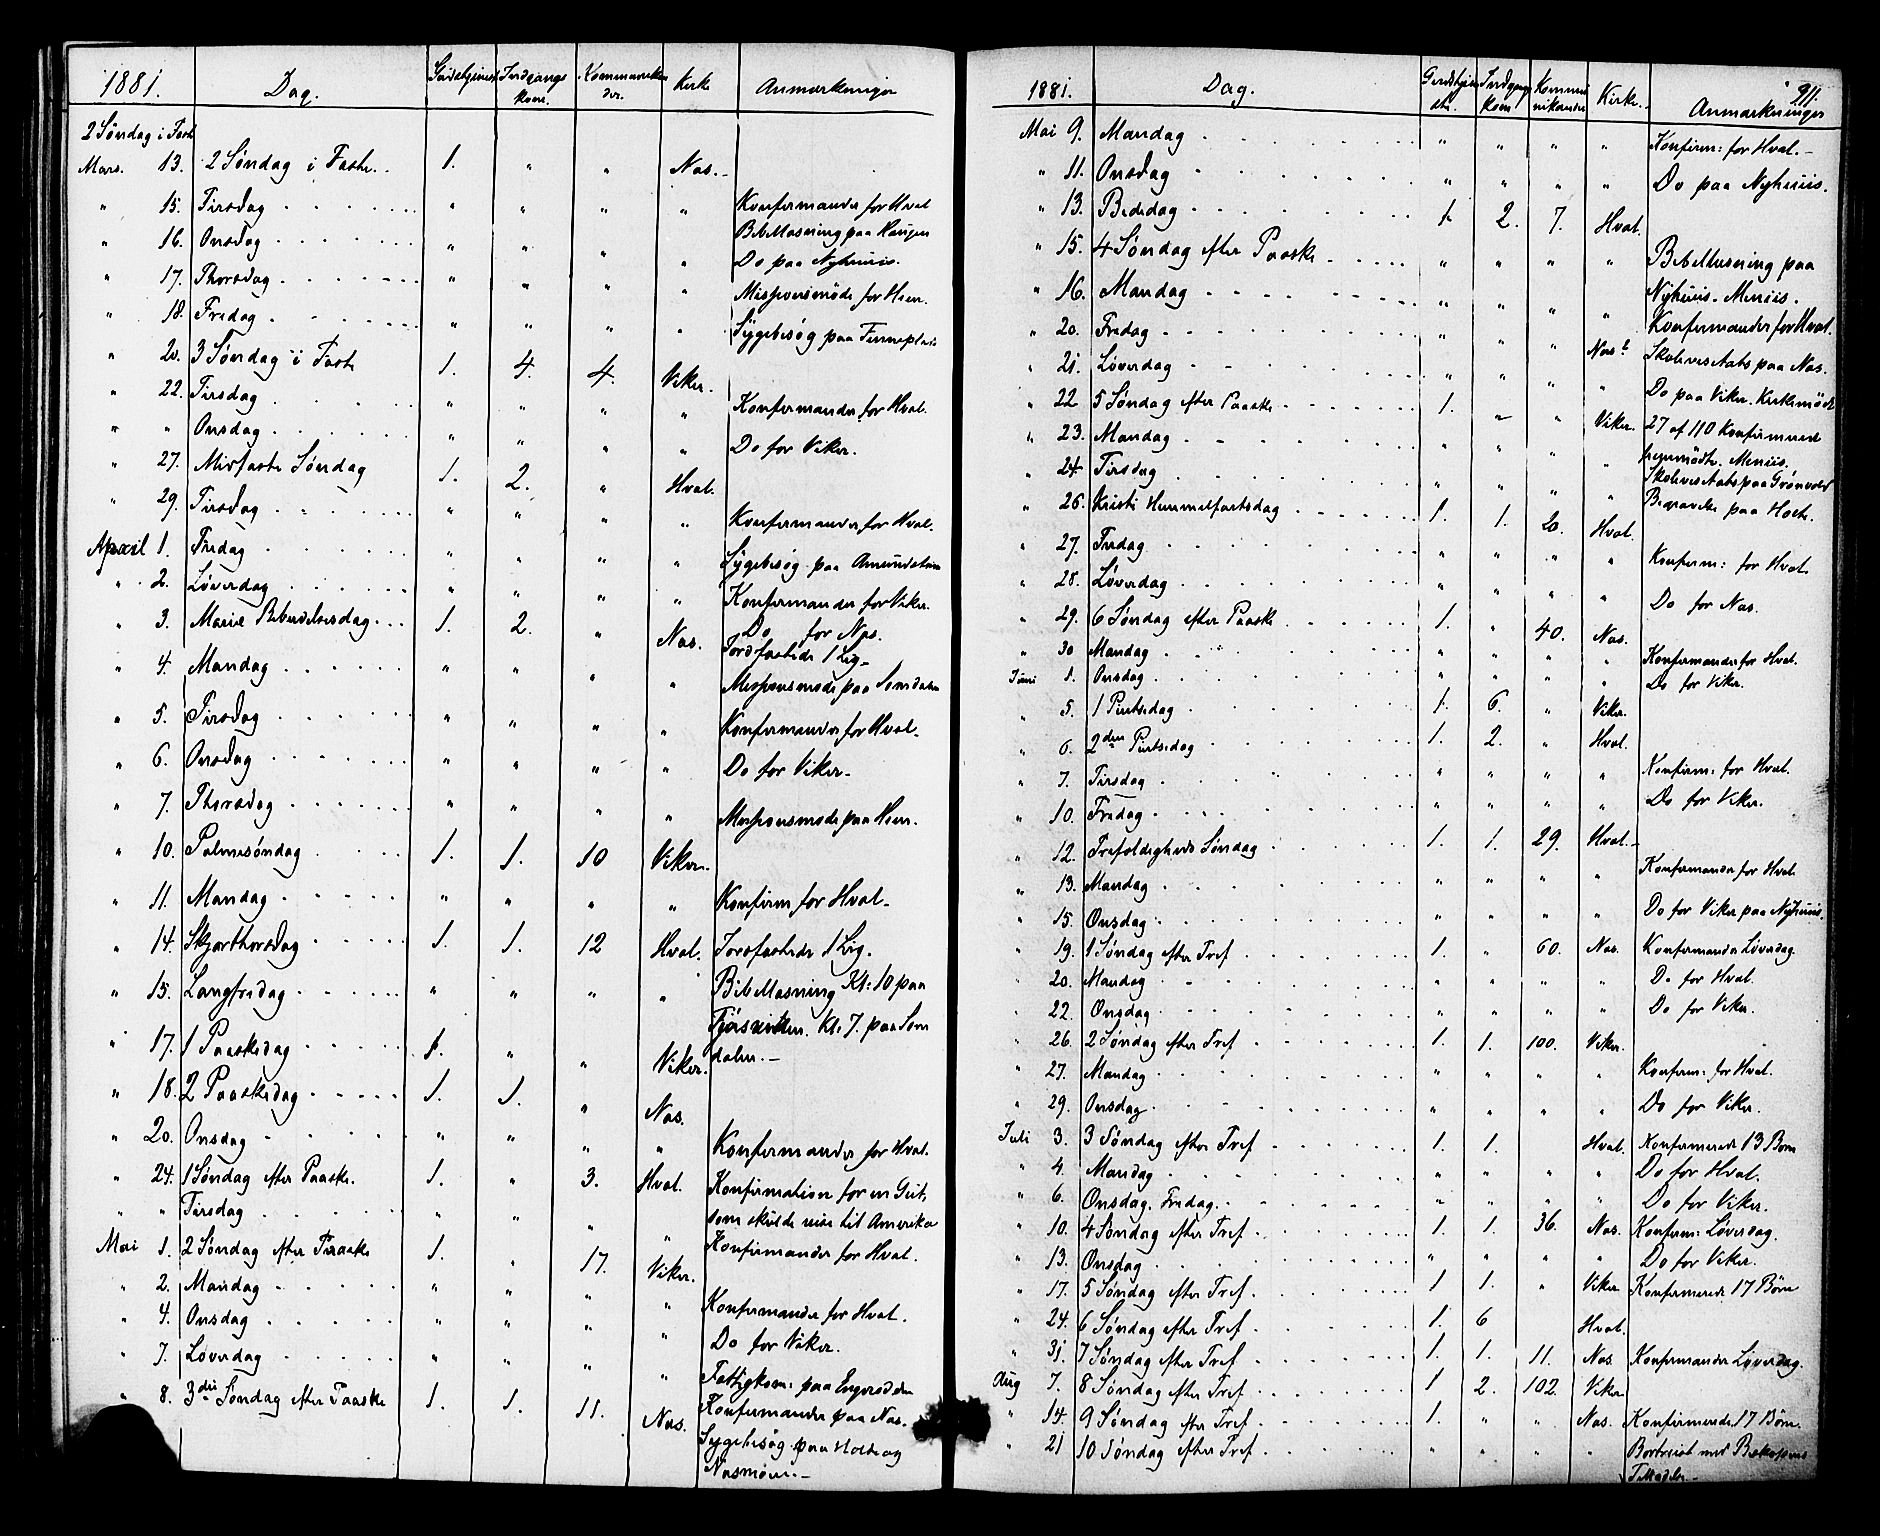 1881. Dag. Gudstjenest Indgangs kone. Kommunikan der. Kirke Anmærkninger
2 Søndag i Fast
Mars. 13. 2 Søndag i Faste.. 1. " " Nas.-
" 15. Tirsdag " " " " Konfirmander for Hval
" 16. Onsdag " " " " Bibellæsning paa Haugen
Do paa Nyhuus.
" 17. Thorsdag " " " " Misjonsmøde for Hem.
" 18. Fredag " " " " Sygebesøg paa
" 20. 3 Søndag i Faste 1. 4. 4. Viker.
" 22. Tirsdag " " " " Konfirmander for Hval.
" " Onsdag " " " " Do for Viker.
" 27. Midfaste Søndag 1. 2. " Hval.
" 29. Tirsdag " " " " Konfirmander for Hval.
April 1. Fredag " " " " Sygebesøg paa
" 2. Løverdag " " " " Konfirmander for Viker.
" 3. Mariæ Bebudelsesdag 1. 2. " Nas. Do for Nas.
Jordfæstede 1 Lig-
" 4. Mandag " " " " Misjonsmøde paa Somdalen
" 5. Tirsdag " " " " Konfirmander for Hval.
" 6. Onsdag " " " " Do for Viker-
" 7. Thorsdag " " " " Misjonsmøde paa Hem.
" 10. Palmesøndag 1. 1. 10 Viker.
" 11. Mandag " " " " Konfirm for Hval-
" 14. Skjærthorsdag 1. 1. 12 Hval. Jordfæstede 1 Lig.
" 15. Langfredag " " " " Bibellæsning Kl: 10 paa
Kl. 7. paa Som
dalen.-
" 17. 1 Paaskedag 1. " " Viker.
" 18. 2 Paaskedag 1. 1. " Nas.
" 20. Onsdag " " " " Konfirmander for Hval.
" 24. 1 Søndag efter Paaske. 1. " 3. Hval. Konfirmation for en Gut,
som skulde reise til Amerika
" " Tirsdag " " " " Konfirmander for Hval.
Mai 1. 2 Søndag efter Paaske 1. " 17. Viker.
" 2. Mandag " " " " Konfirmander for Hval.
" 4. Onsdag " " " " Do for Viker.
" 7. Løverdag " " " " Fattigkom: paa
" 8. 3die Søndag efter Paaske 1. 1. 11. Nas. Konfirmander paa Nas.
Sygebesøg paa Holte og
Nasmoen.-
1881. Dag. Gudstjene ste. Indgangs kone Kommu nikander Kirke. Anmærkninger
911.
Mai 9. Mandag " " " " Konfirm: for Hval.-
" 11. Onsdag " " " " Do paa Nyhuus.
" 13. Bededag 1. 2. 7. Hval.
" 15. 4 Søndag efter Paaske " " " " Bibellæsning paa
Nyhuus.
" 16. Mandag " " " " Konfirmander for Hval.
" 20. Fredag " " " Nas Skolevæs Aabs paa Nas.
" 21. Løverdag " " " " Do paa Viker. Kirkemøde
" 22 5 Søndag efter Paaske 1. " " Viker. 27 af 110 Konfirmerede
" 23. Mandag " " " " fremmødte.
" 24. Tirsdag " " " " Skolevæs Aabs paa Grønvold
Begravelse paa
" 26. Kristi Himmelfartsdag 1. 1. 20. Hval.
" 27. Fredag " " " " Konfirm: for Hval.
" 28. Løverdag " " " " Do for Nas.
" 29. 6 Søndag efter Paaske 1. " 40. Nas.
" 30 Mandag " " " " Konfirmander for Hval.
Juni 1. Onsdag " " " " Do for Viker.
" 5. 1 Pintsedag 1. 6. " Viker.
" 6. 2den Pintsedag 1. 2. " Hval.
" 7. Tirsdag " " " " Konfirm: for Hval.
" 10. Fredag " " " " Do for Viker.
" 12. Trefoldigheds Søndag 1. 1. 29. Hval.-
" 13. Mandag " " " " Konfirmander for Hval
" 15. Onsdag " " " " Do for Viker paa Nyhuus.
" 19. 1 Søndag efter Tref 1. " 60. Nas. Konfirmander Løverdag.
" 20. Mandag " " " " Do for Hval.
" 22. Onsdag " " " " Do for Viker.
" 26. 2 Søndag efter Tref 1. 1. 100. Viker.
" 27. Mandag " " " " Konfirm: for Hval.
" 29. Onsdag " " " " Do for Viker.
Juli 3. 3 Søndag efter Tref 1. 1. Hval. Konfirmerede 13 Børn
" 4. Mandag " " " " Do for Hval.
" 6. Onsdag. Fredag. " " " " Do for Viker.
" 10. 4 Søndag efter Tref. 1. 1. 36. Nas. Konfirm: Løverdag.
" 13. Onsdag " " " " Do for Viker.
" 17. 5 Søndag efter Tref. 1 1. " Viker Konfirmerede 17 Børn
" 24. 6 Søndag efter Tref. 1. 6 Hval.
" 31. 7 Søndag efter Tref 1. 1. 11. Nas. Konfirmander Løverdag.
Aug 7. 8 Søndag efter Tref 1 2. 102. Viker
" 14. 9 Søndag efter Tref 1. " " Nas. Konfirmerede 17 Børn.
" 21 10 Søndag efter Tref. " " " " Bortreist med Biskopens
Tilladelse-